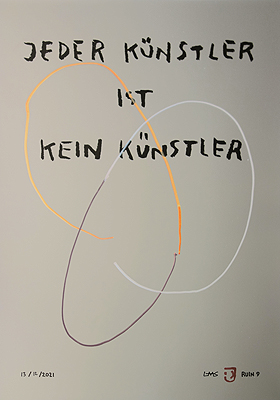 JEDER KÜNSTLER
IST
KEIN KÜNSTLER
13/12/2021
LMS RUIN 9